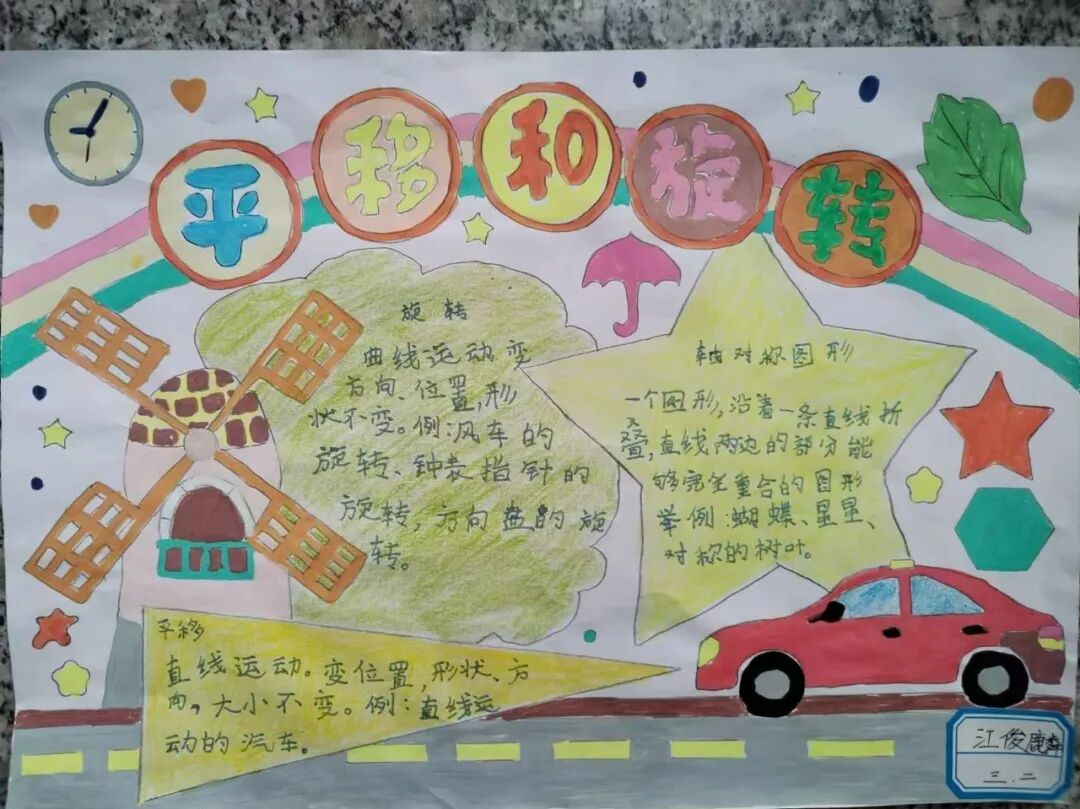 平移和旋转
旋转
曲线运动变
方向、位置,形
状不变。例:风车的
旋转、钟表指针的
旋转,方向盘的旋
转。
轴对称图形
一个图形,沿着一条直线折
叠,直线两边的部分能
够完全重合的图形
举例:蝴蝶、星星、
对称的树叶。
平移
直线运动。变位置,形状、方
向,大小不变。例:直线运
动的汽车。
江俊麟
三.二